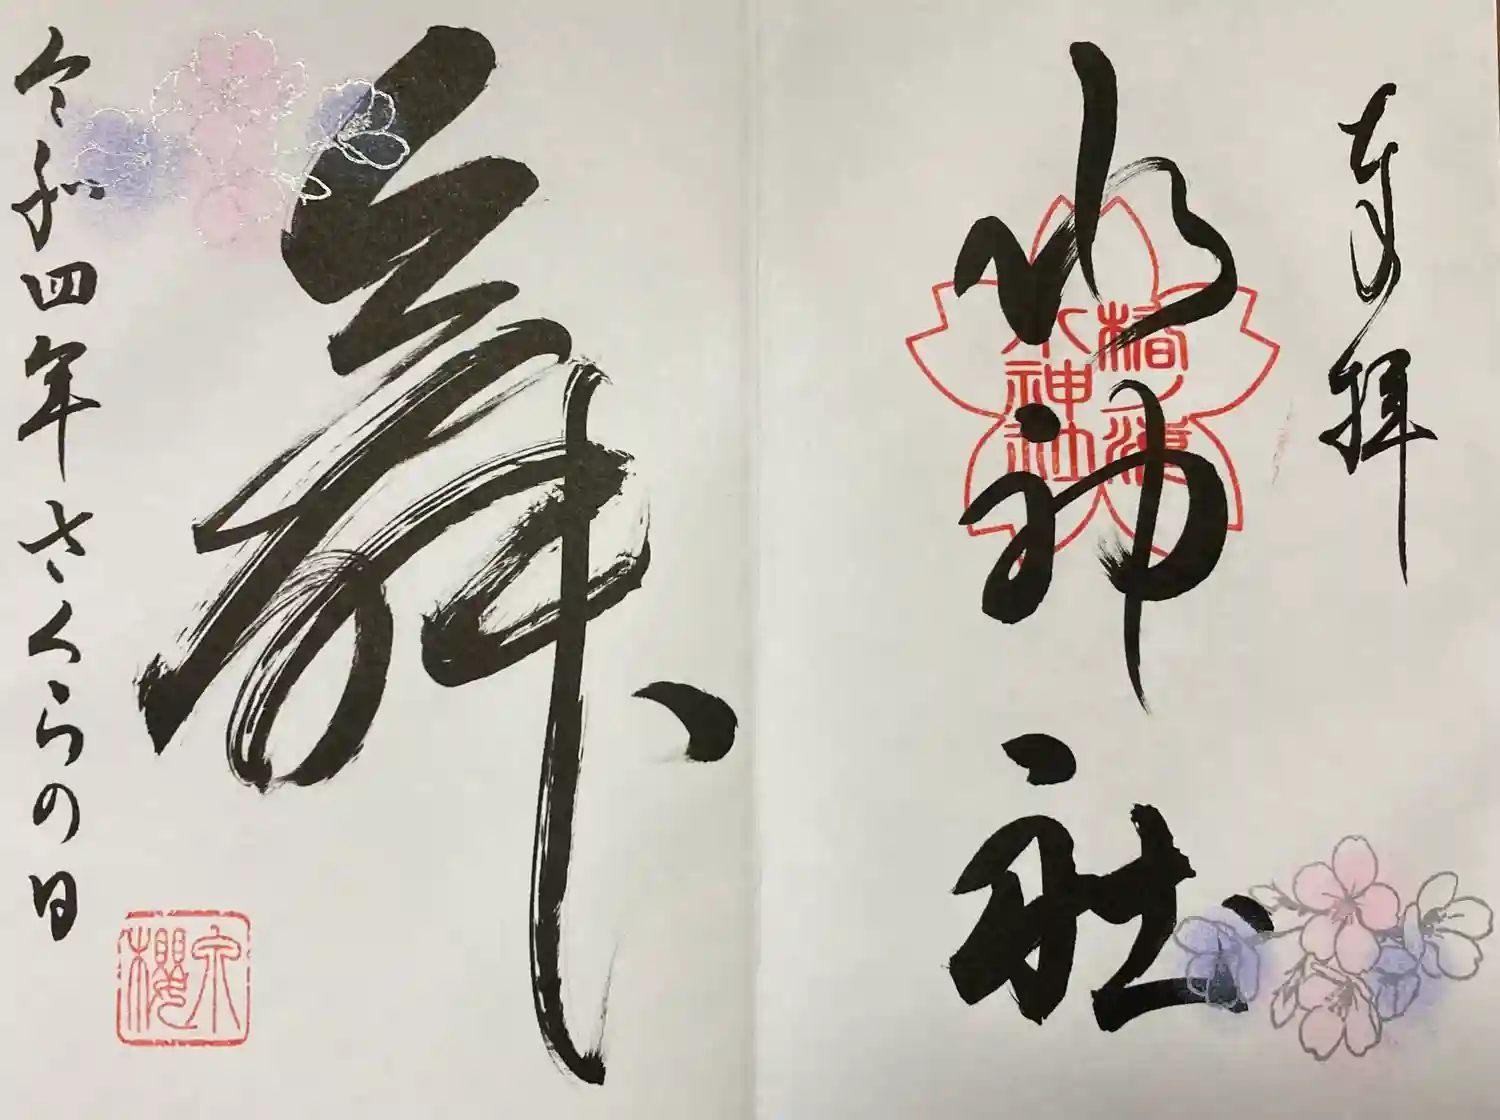 奉拝
水神社
椿ノ海
水神社
舞
令和四年さくらの日